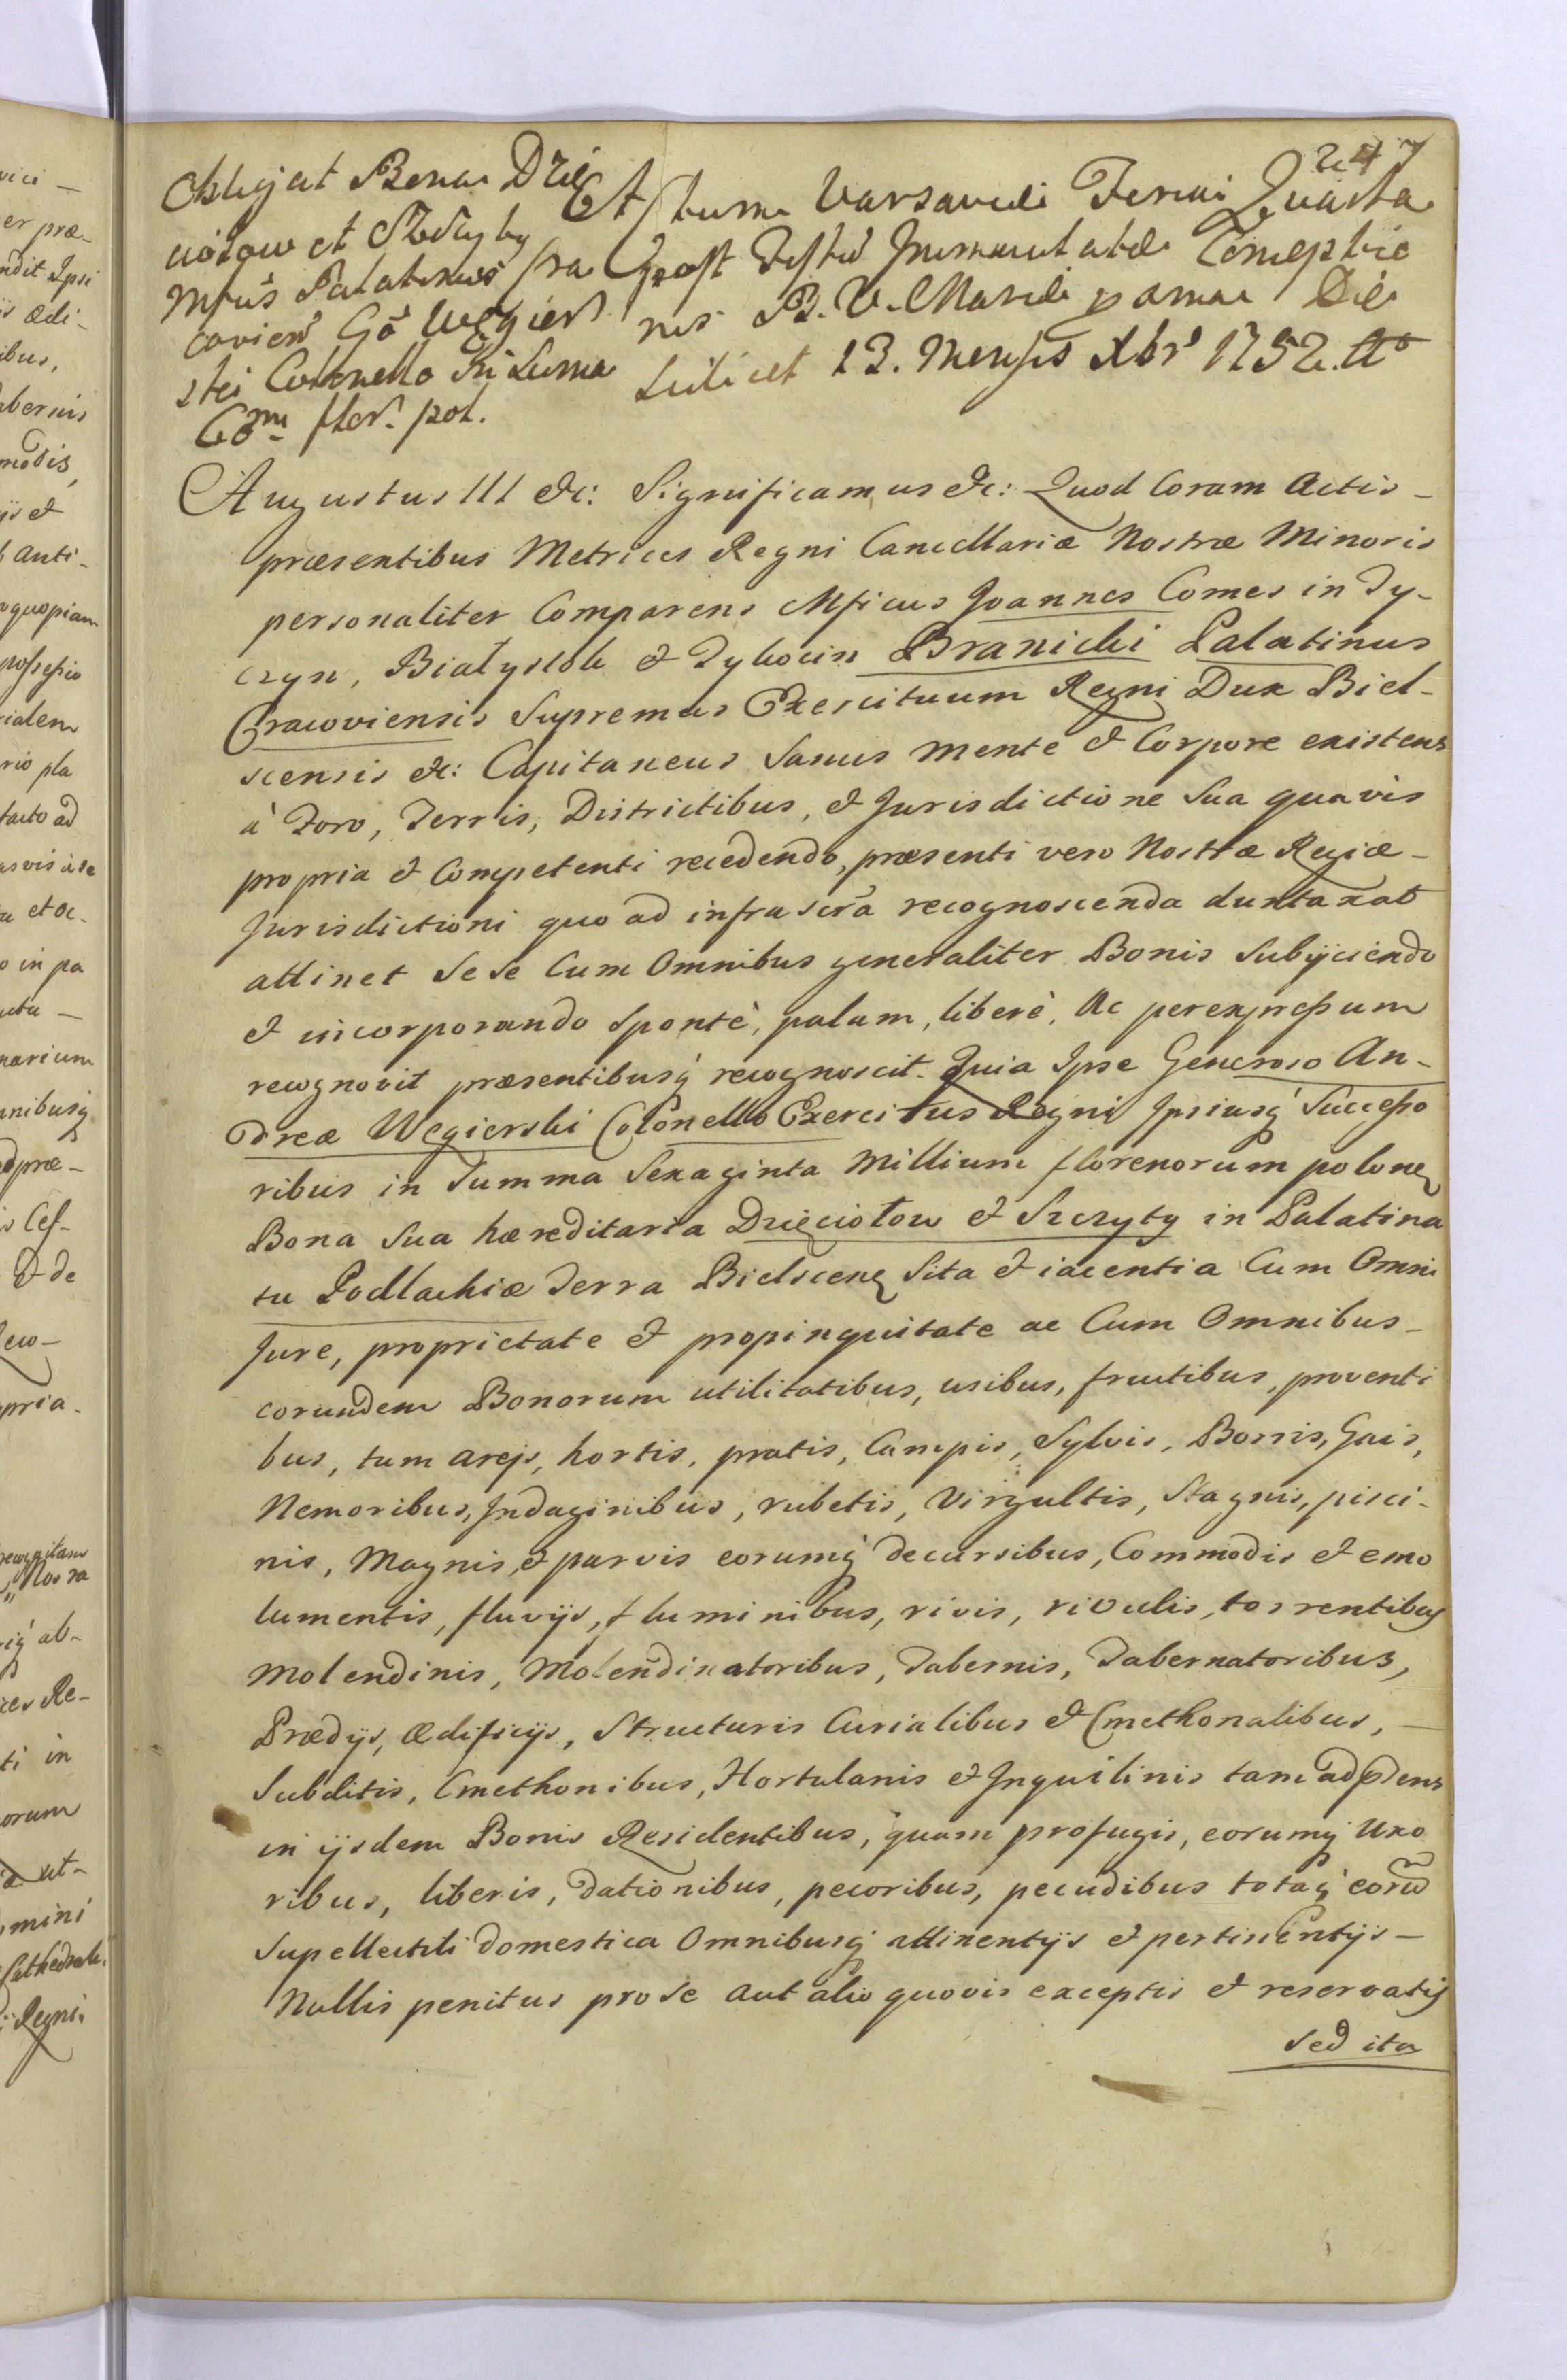 247
Obligat Bona Dzię
ciołow et Szczyty
Mficus Palatinus Cra
covien Gō Węgier
skei Colonello In Suma
60m flor. pol.
Actum Varsaviæ Feria Quarta
post Festū Immaculatæ Conceptio
nis B. V. Mariæ proxima Die
Scilicet 13. Mensis Xbr 1752. Ao
Augustus III &c: Significamus &c: Quod Coram Actis
præsentibus Metrices Regni Cancellariæ Nostræ Minoris
personaliter Comparens Mficus Joannes Comes in Ty-
czyn, Białystok & Tykocin Branicki Palatinus
Cracoviensis Supremus Exercituum Regni Dux Biel-
scensis &c: Capitaneus Sanus mente & Corpore existens
à Foro, Terris, Districtibus, & Jurisdictione Sua quavis
propria & Competenti recedendo, præsenti vero Nostræ Regiæ
Jurisdictioni quo ad infrascrā recognoscenda duntaxat
attinet Se se Cum Omnibus generaliter Bonis Subijciendo
& incorporando Sponte, palam, liberè, Ac per expressum
recognovit præsentibusq recognoscit. Quia Ipse Generoso An-
dreæ Wegierski Colonello Exercitus Regni Ipsiusq Successo
ribus in Summa Sexaginta Millium florenorum polonq
Bona Sua hæreditaria Dzięciołow & Szczyty in Palatina
tu Podlachiæ Terra Bielscenq Sita & iacentia Cum Omni
Jure, proprietate & propinquitate ac Cum Omnibus
eorundem Bonorum utilitatibus, usibus, fructibus, proventi
bus, tum areis, hortis, pratis, Campis, Sylvis, Borris, Gais,
Nemoribus, Indaginibus, rubetis, Virgultis, Stagnis, pisci-
nis, Magnis, & parvis eorumq decursibus, Commodis et emo
lumentis, fluvijs, fluminibus, rivis, rivulis, torrentibus
Molendinis, Molendinatoribus, Tabernis, Tabernatoribus,
Prædijs, ædificijs, Structuris Curialibus & Cmethonalibus,
Subditis, Cmethonibus, Hortulanis & Inquilinis tam ad pdens
in ijsdem Bonis Residentibus, quam profugis, eorumq Uxo
ribus, liberis, dationibus, pecoribus, pecudibus totaq eorū
Supellectili domestica Omnibusq attinentijs et pertinentijs
Nullis penitus pro Se aut alio quovis exceptis & reservatis
Sed ita